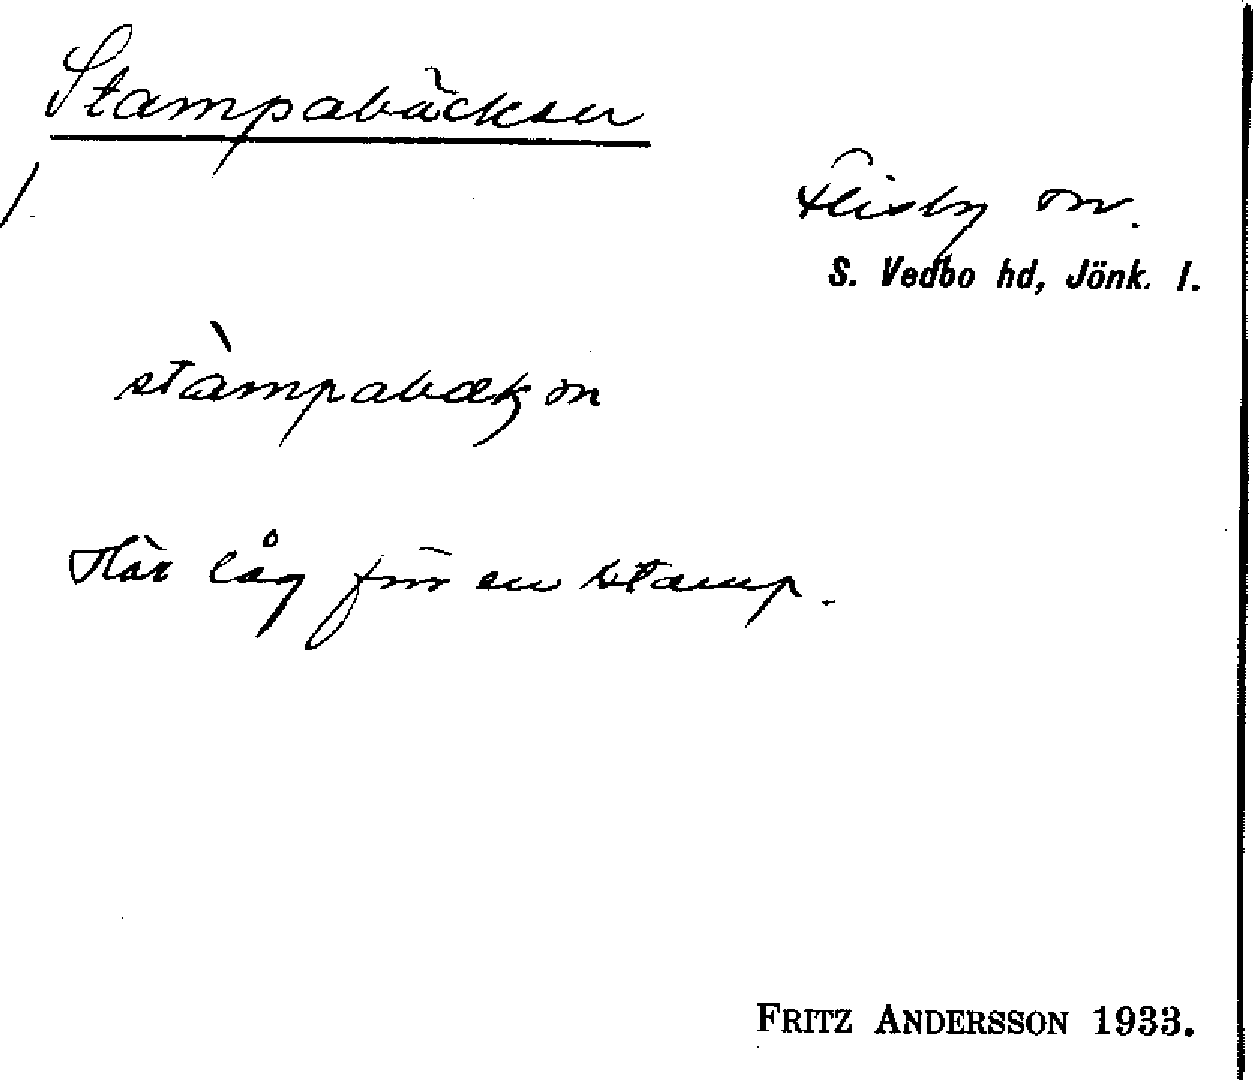 Stampabäcken
Flisby sn.
S. Vedbo hd, Jönk. l.
stàmpabækən
Här låg förr en stamp.
FRITZ ANDERSSON 1933.